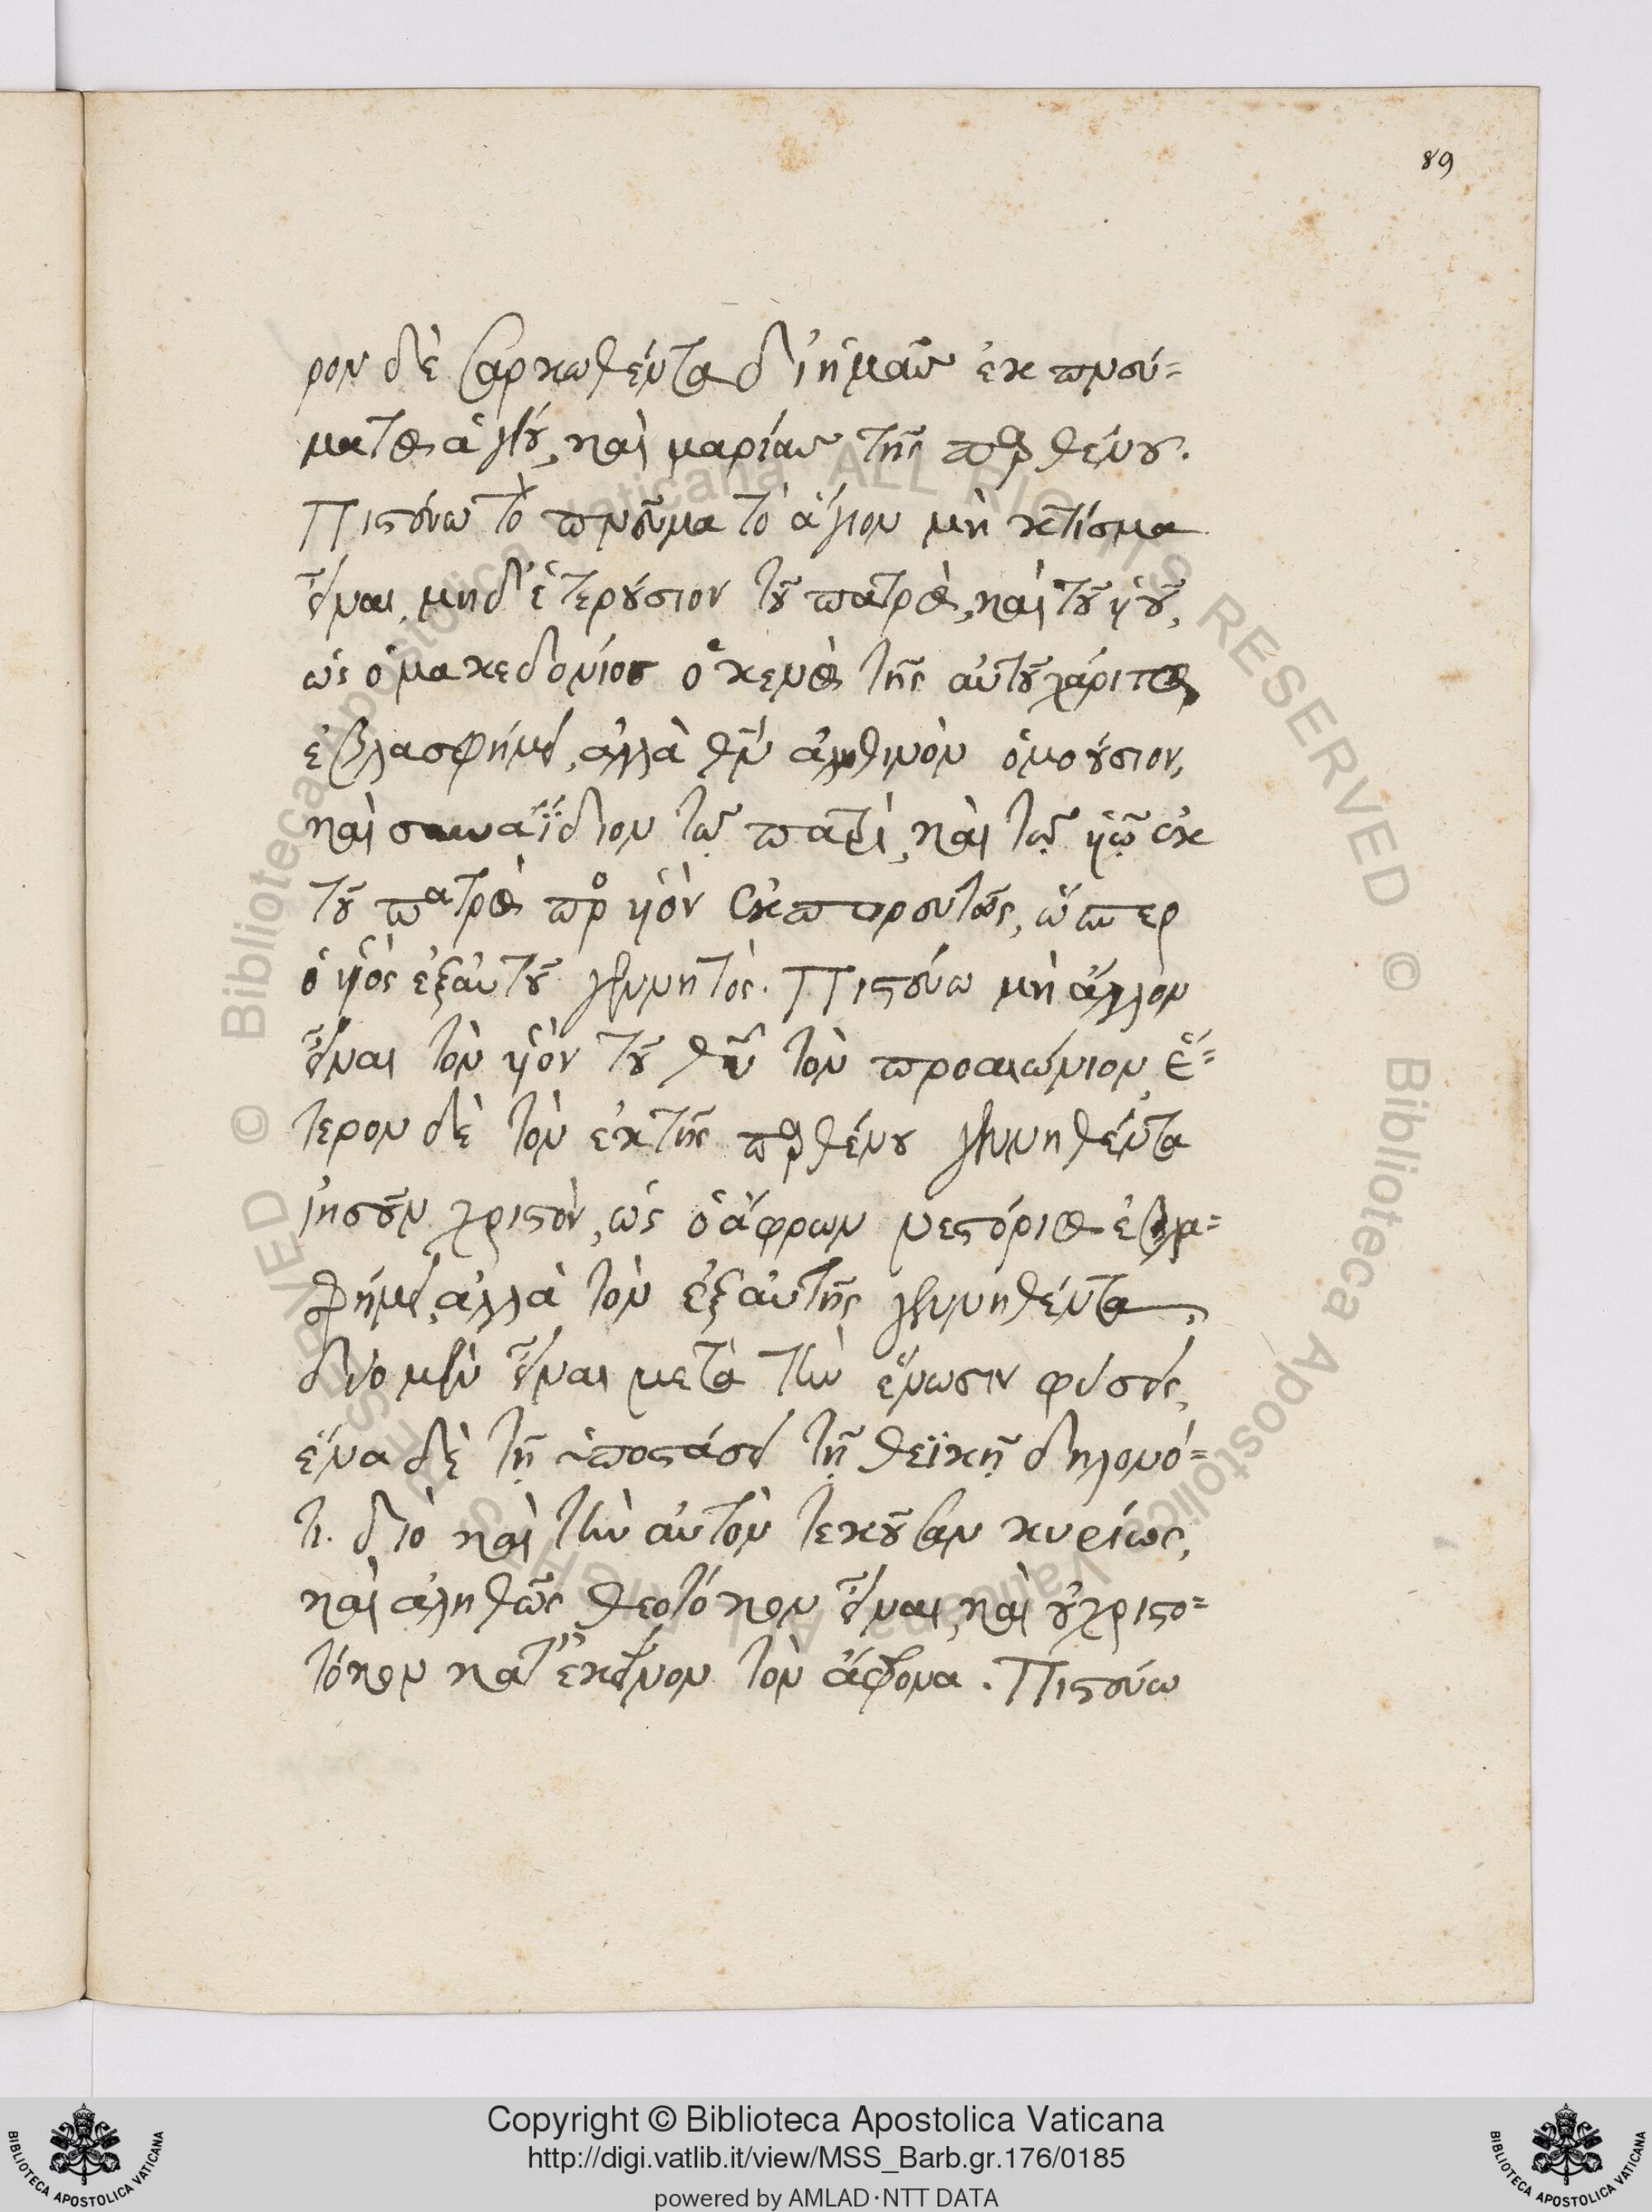 89
ρον δὲ σαρκωθέντα δι ἡμᾶς ἐκ πνεύ=
ματος ἁγίου, καὶ μαρίας τῆς παρθένου.
Πιστεύω τὸ πνεῦμα τὸ ἅγιον μὴ κτίσμα
εἶναι, μηδ' ἑτερούσιον τοῦ πατρὸς, καὶ τοῦ υἱοῦ,
ὡς ὁ μακεδόνιος ὁ κενὸς τῆς αὐτοῦ χάριτος
ἐβλασφήμει, ἀλλὰ θεὸν ἀληθινὸν ὁμοούσιον,
καὶ συναΐδιον τῷ πατρὶ, καὶ τῷ υἱῷ ἐκ
τοῦ πατρὸς πρὸς υἱὸν ἐκπορευτῶς, ὥσπερ
ὁ υἱὸς ἐξ αὐτοῦ γεννητός. Πιστεύω μὴ ἄλλον
εἶναι τὸν υἱὸν τοῦ θεοῦ τὸν προαιώνιον, ἕ=
τερον δὲ τὸν ἐκ τῆς παρθένου γεννηθέντα
ἰησοῦν χριστὸν, ὡς ὁ ἄφρων νεστόριος ἐβλα=
σφήμει, ἀλλὰ τὸν ἐξ αὐτῆς γεννηθέντα,
δύο μὲν εἶναι μετὰ τὴν ἕνωσιν φύσεις,
ἕνα δὲ τῇ ὑποστάσει τῇ θεϊκῇ δηλονό=
τι. διὸ καὶ τὴν αὐτὸν τεκοῦσαν κυρίως,
καὶ ἀληθῶς θεοτόκον εἶναι, καὶ οὐ χριστο=
τόκον κατ' ἐκεῖνον τὸν ἄφρονα. Πιστεύω
Copyright © Biblioteca Apostolica Vaticana
http://digi.vatlib.it/view/MSS_Barb.gr.176/0185
powered by AMLAD·NTT DATA